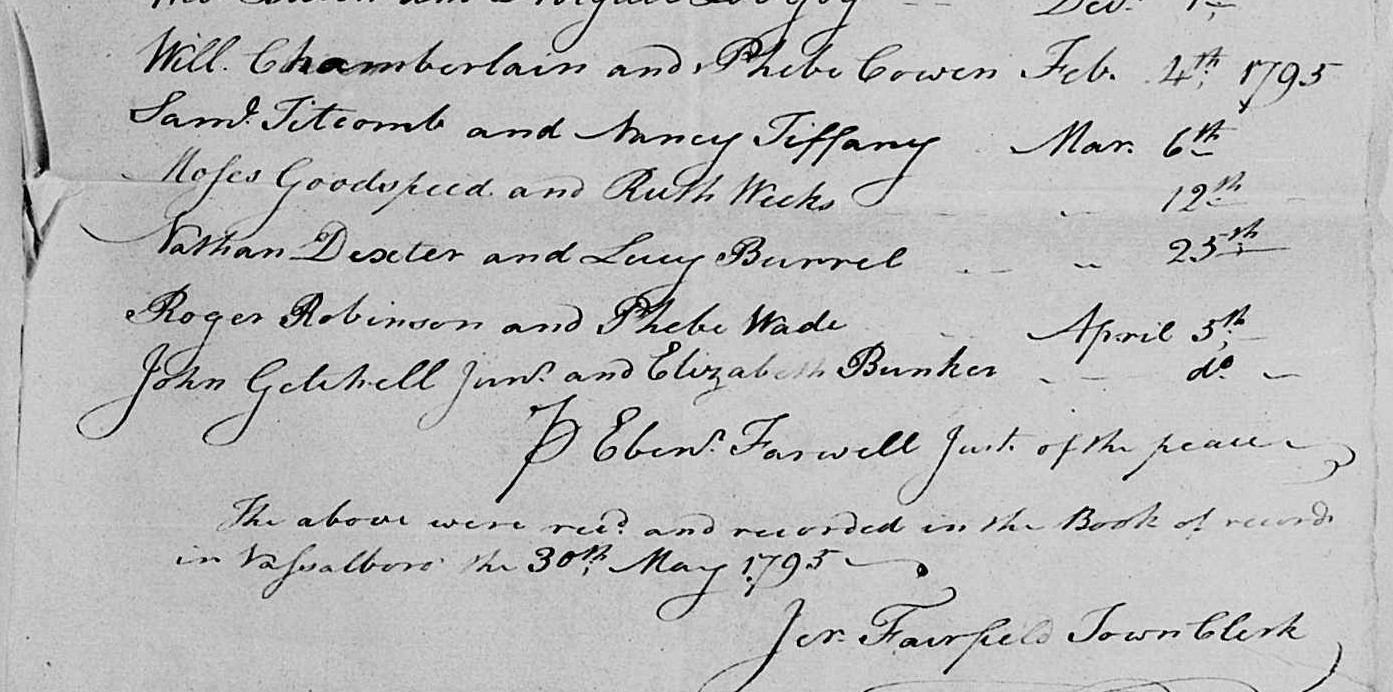 Dec.
Will. Chamberlain and Phebe Cowen Feb. 4th 1795
Saml. Titcomb and Nancy Tiffany Mar. 6th
Moses Goodspeed and Ruth Weeks 12th
Nathan Dexter and Lucy Burrel 25th
Roger Robinson and Phebe Wade April 5th
John Getchell Junr. and Elizabeth Bunker do
P Ebenr. Farwell Just. of the peace
The above were recd. and recorded in the Book of records
in Vassalboro the 30th May 1795
Jer. Fairfield Town Clerk